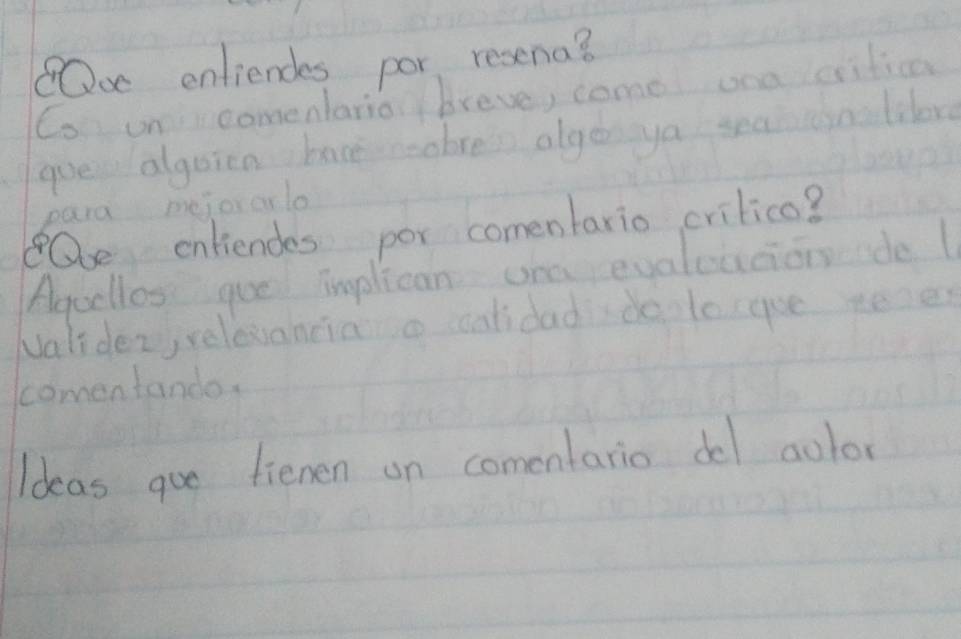 ¿Que entiendes por resena?
Es un comentario breve, como una critica
que alguien hace sobre algo ya sea un libro
para mejorarlo
¿Que entiendes por comentario critico?
Aquellos que implican una evaluación de l
validez, relevancia o calidad de lo que se es
comentando.
Ideas que tienen un comentario del autor